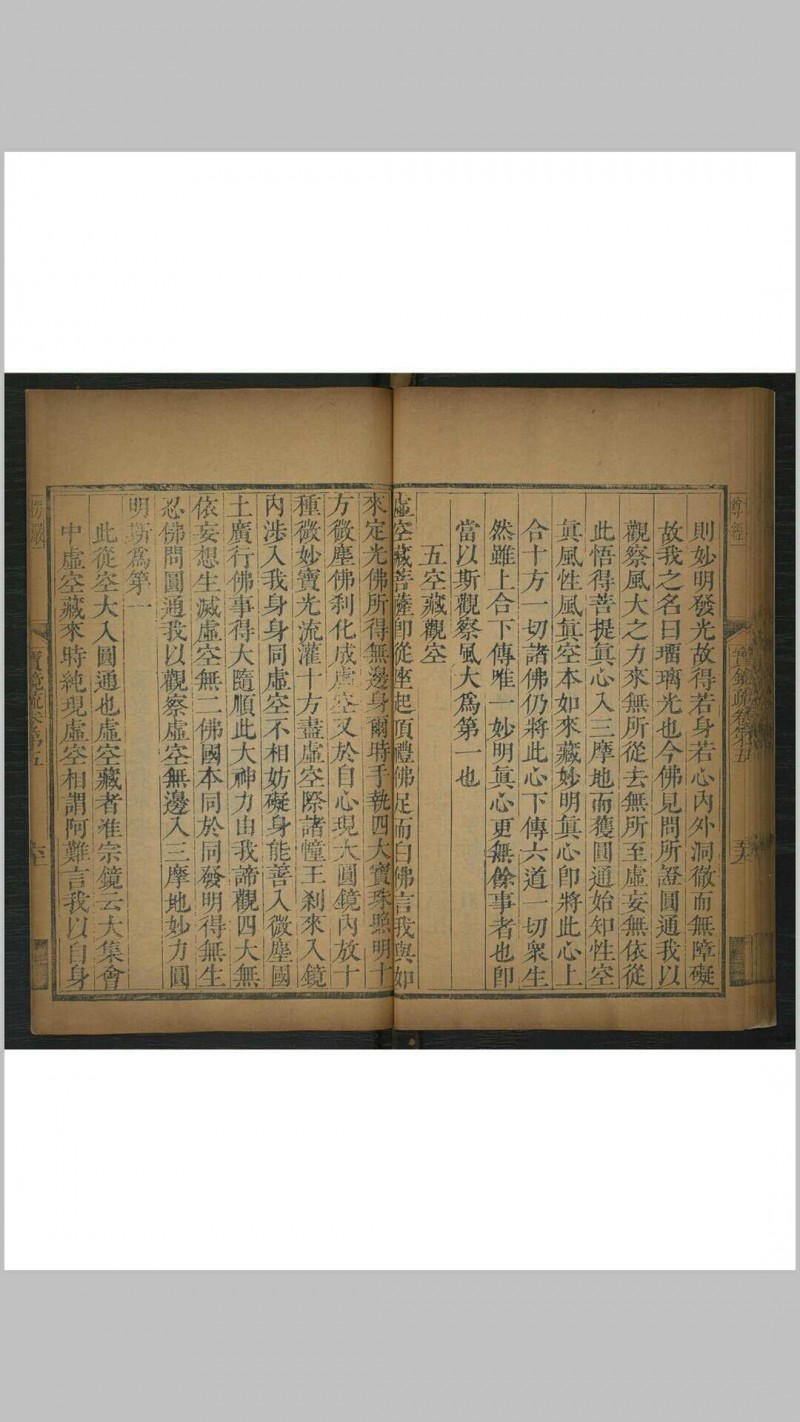 則妙明發光故得若身若心內外洞徹而無障礙
故我之名曰瑠璃光也今佛見問所證圓通我以
觀察風大之力來無所從去無所至虛妄無依從
此悟得菩提真心入三摩地而獲圓通始知性空
真風性風真空本如來藏妙明真心即將此心上
合十方一切諸佛仍將此心下傳六道一切衆生
然雖上合下傳唯一妙明真心更無餘事者也即
當以斯觀察風大爲第一也
五空藏觀空
虛空藏菩薩即從座起頂禮佛足而白佛言我與如
來定光佛所得無邊身爾時手執四大寶珠照明十
方微塵佛剎化成虛空又於自心現大圓鏡內放十
種微妙寶光流灌十方盡虛空際諸幢王剎來入鏡
內涉入我身身同虛空不相妨礙身能善入微塵國
土廣行佛事得大隨順此大神力由我諦觀四大無
依妄想生滅虛空無二佛國本同於同發明得無生
忍佛問圓通我以觀察虛空無邊入三摩地妙力圓
明斯爲第一
此從空大入圓通也虛空藏者准宗鏡云大集會
中虛空藏來時純現虛空相謂阿難言我以自身
楞嚴
寶鏡疏卷第五